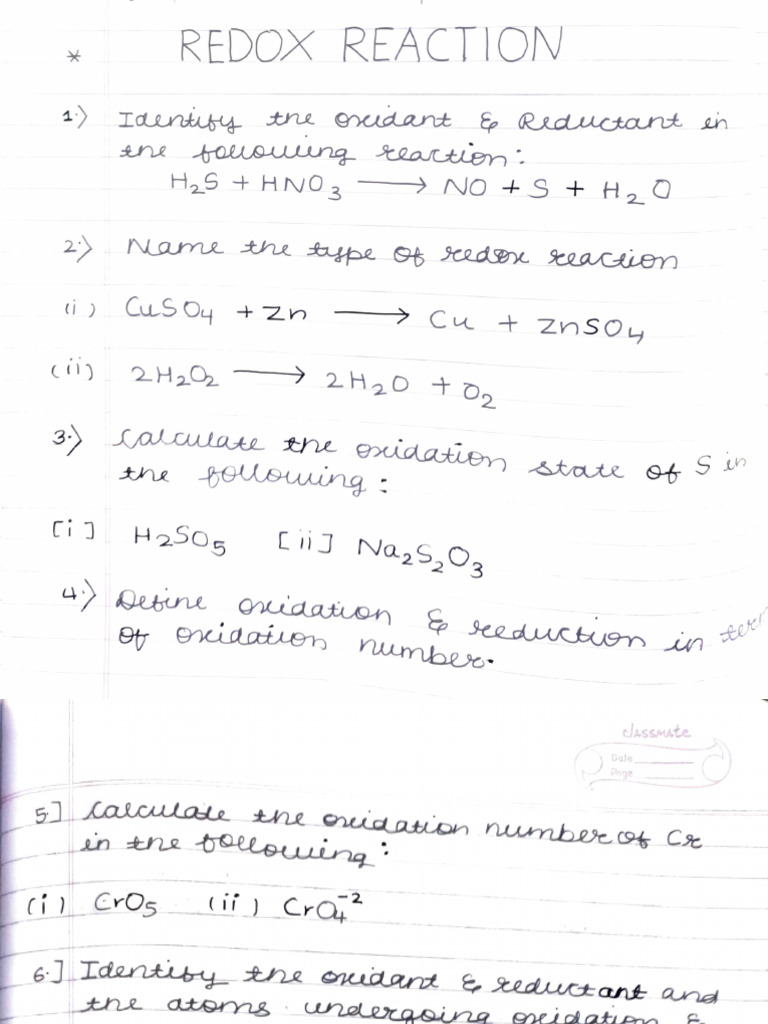 * REDOX REACTION
1.) Identify the oxidant & Reductant in
the following reaction:
H₂S + HNO₃ ⟶ NO + S + H₂O
2.) Name the type of redox reaction
(i) CuSO₄ + Zn ⟶ Cu + ZnSO₄
(ii) 2H₂O₂ ⟶ 2H₂O + O₂
3.) Calculate the oxidation state of S in
the following:
[i] H₂SO₅ [ii] Na₂S₂O₃
4.) Define oxidation & reduction in
of oxidation number.
classmate
Date
Page
5.] Calculate the oxidation number of Cr
in the following:
(i) CrO₅ (ii) CrO₄⁻²
6.] Identify the oxidant & reductant and
the atoms undergoing oxidation &